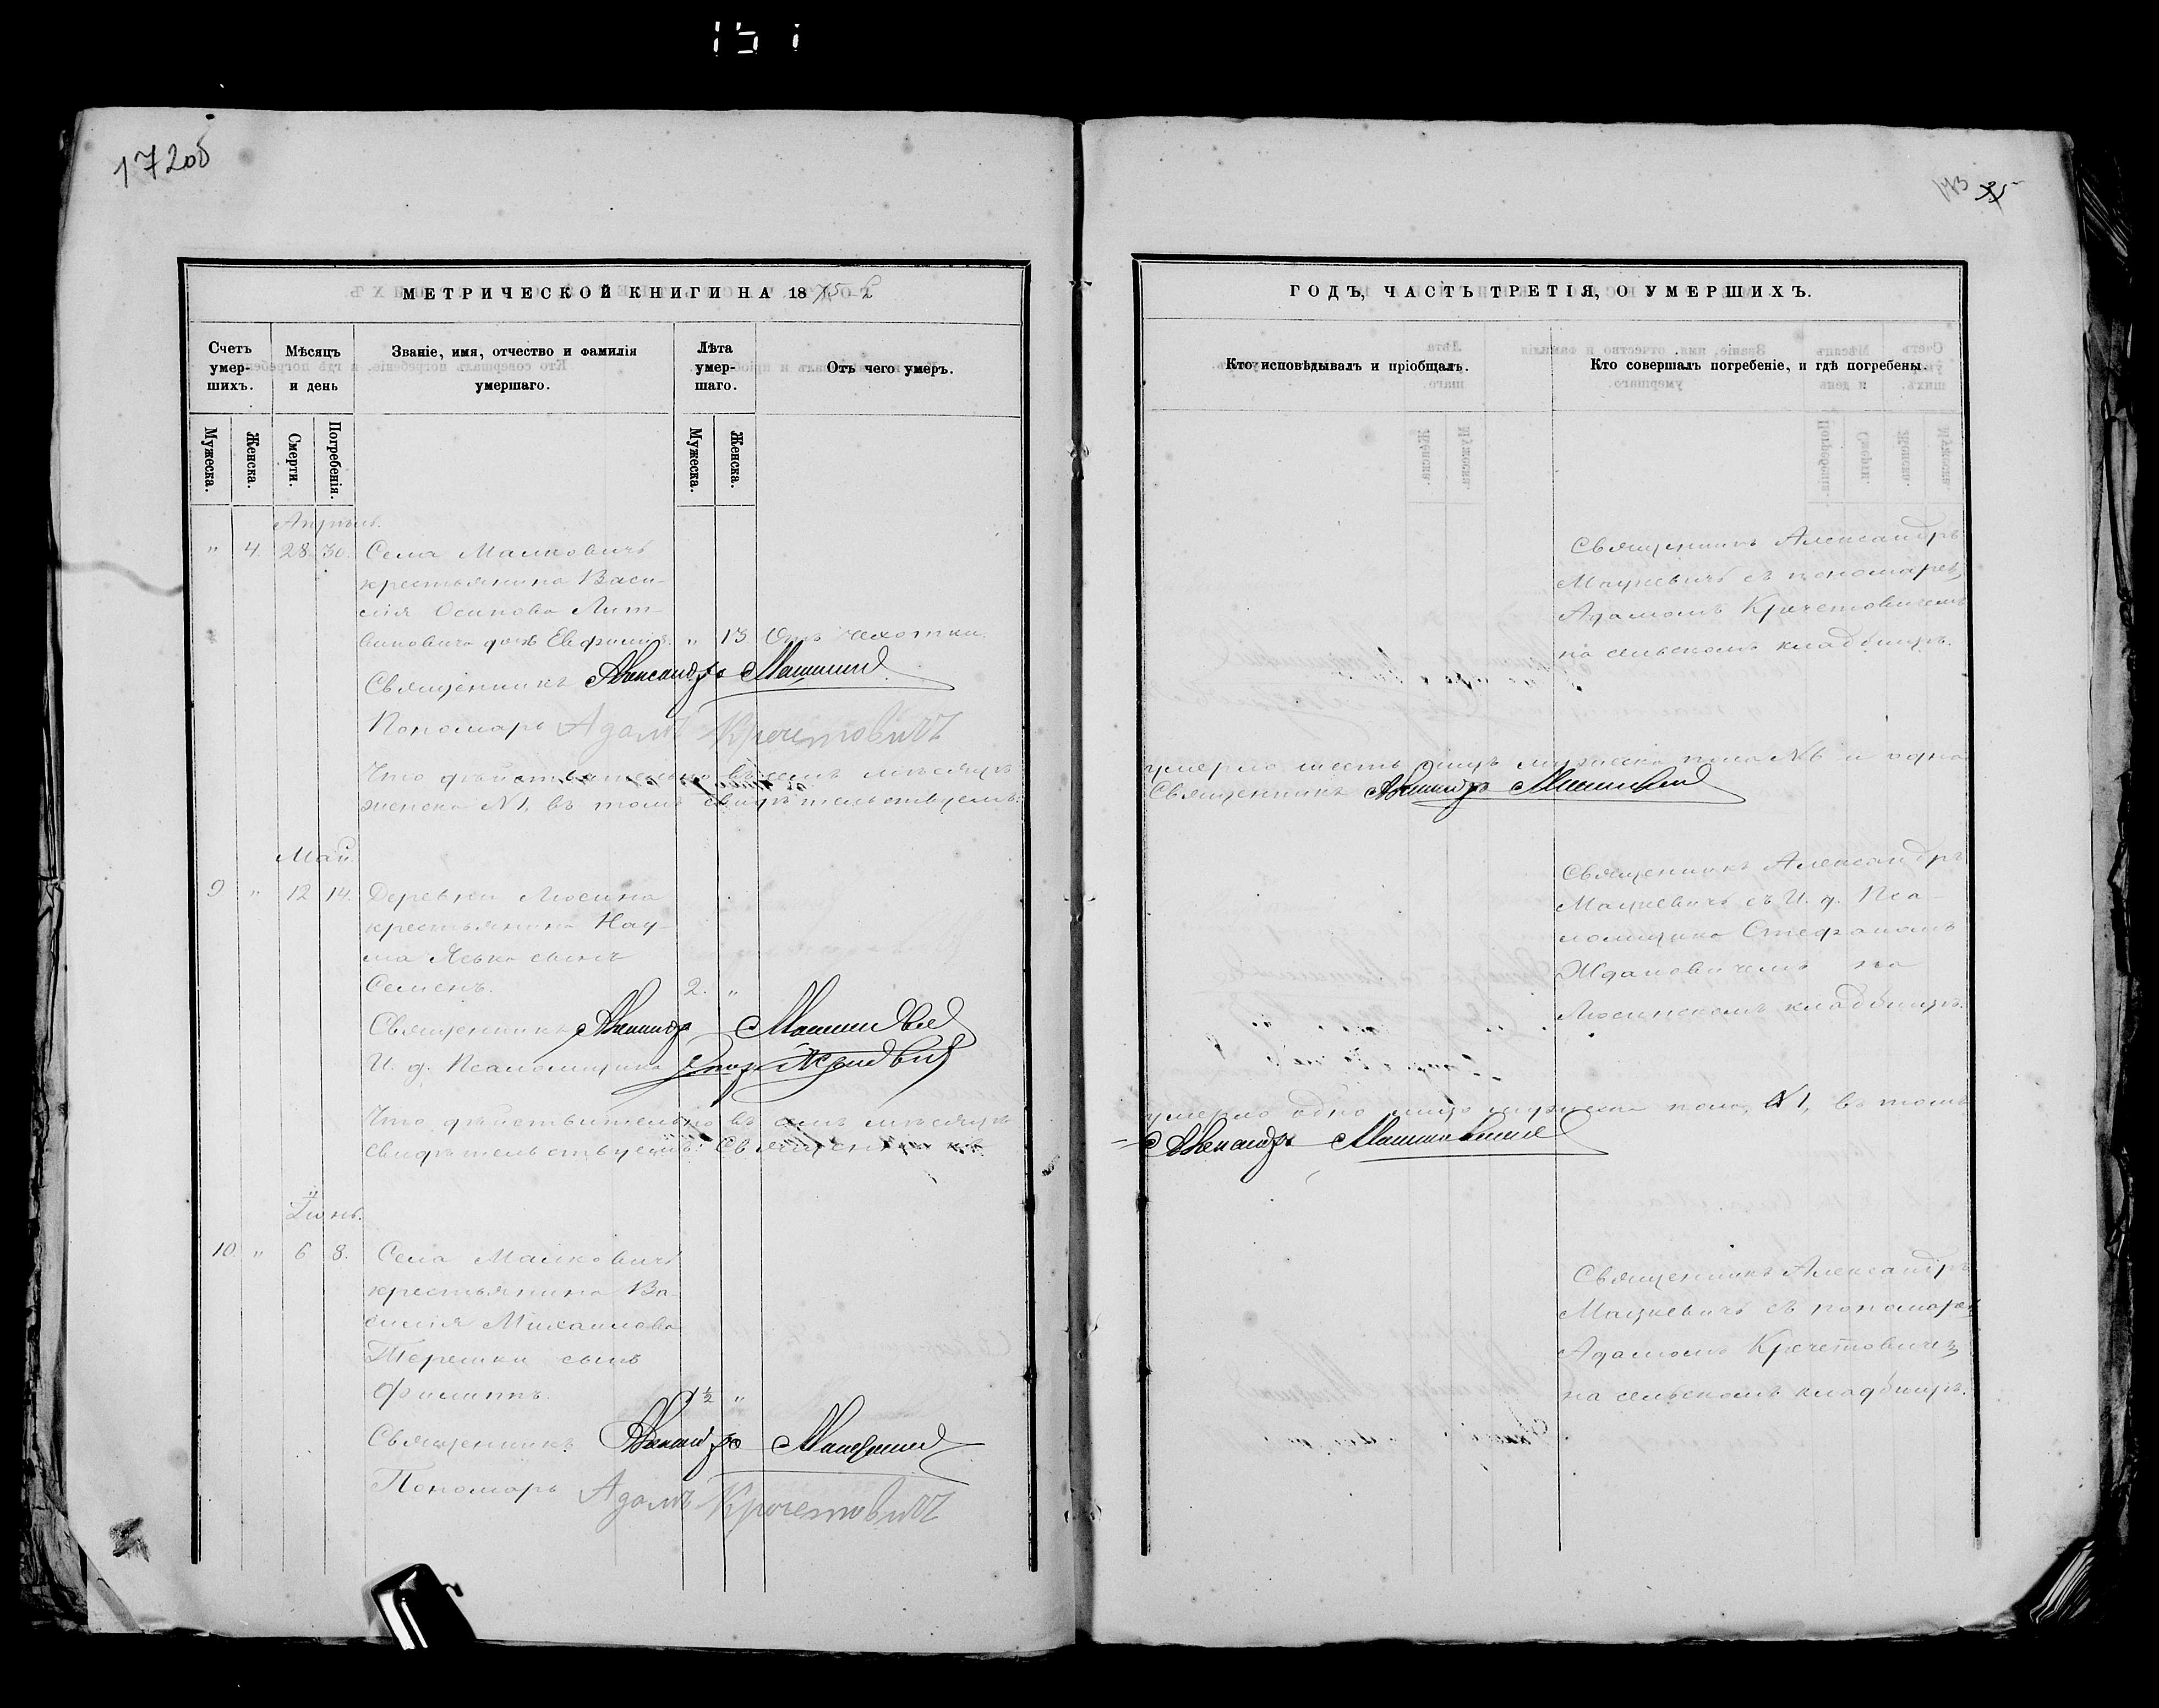 172об
173 35
МЕТРИЧЕСКОЙ КНИГИ НА 1875
Счетъ умер-шихъ.
Мѣсяцъ и день
Званіе, имя, отчество и фамилія умершаго.
Лѣта умер-шаго.
Отъ чего умеръ.
Мужеска.
Женска.
Смерти.
Погребенія.
Мужеска.
Женска.
Апрѣль.
" 4 28. 30. Села Малковичъ
крестьянина Васи-
лія Осипова Лит-
виновича дочь Евфимія. " 13 Отъ чахотки.
Священникъ Александръ Мацкевичъ
Пономарь Адамъ Кречетовичъ
Что дѣйствительно въ семъ мѣсяцѣ
женска №1, въ томъ свидѣтельствуемъ:
Май.
9 " 12 14. Деревни Люсина
крестьянина Нау-
ма Яська сынъ
Семенъ. 2. "
Священникъ Александръ Мацкевичъ
И. д. Псаломщика Ждановичъ
Что дѣйствительно въ семъ мѣсяцѣ
свидѣтельствуемъ: Священникъ
Іюнь.
10. " 6 8. Села Малковичъ
крестьянина Ва-
силія Михаилова
Терешки сынъ
Филиппъ. 1½ "
Священникъ Александръ Мацкевичъ
Пономарь Адамъ Кречетовичъ
ГОДЪ, ЧАСТЬ ТРЕТІЯ, О УМЕРШИХЪ.
Кто исповѣдывалъ и пріобщалъ.
Кто совершалъ погребеніе, и гдѣ погребены.
Священникъ Александръ
Мацкевичъ съ пономарем
Адамомъ Кречетовичемъ
на сельскомъ кладбищѣ.
умерло шесть лицъ мужеска пола №6 и одна
Священникъ Александръ Мацкевичъ
Священникъ Александръ
Мацкевичъ съ И. д. Пса-
ломщика Стефаномъ
Ждановичемъ на
Люсинскомъ кладбищѣ.
умерло одно лицо мужеска пола, №1, въ томъ
Александръ Мацкевичъ
Священникъ Александръ
Мацкевичъ съ пономарем
Адамомъ Кречетовичем
на сельскомъ кладбищѣ.